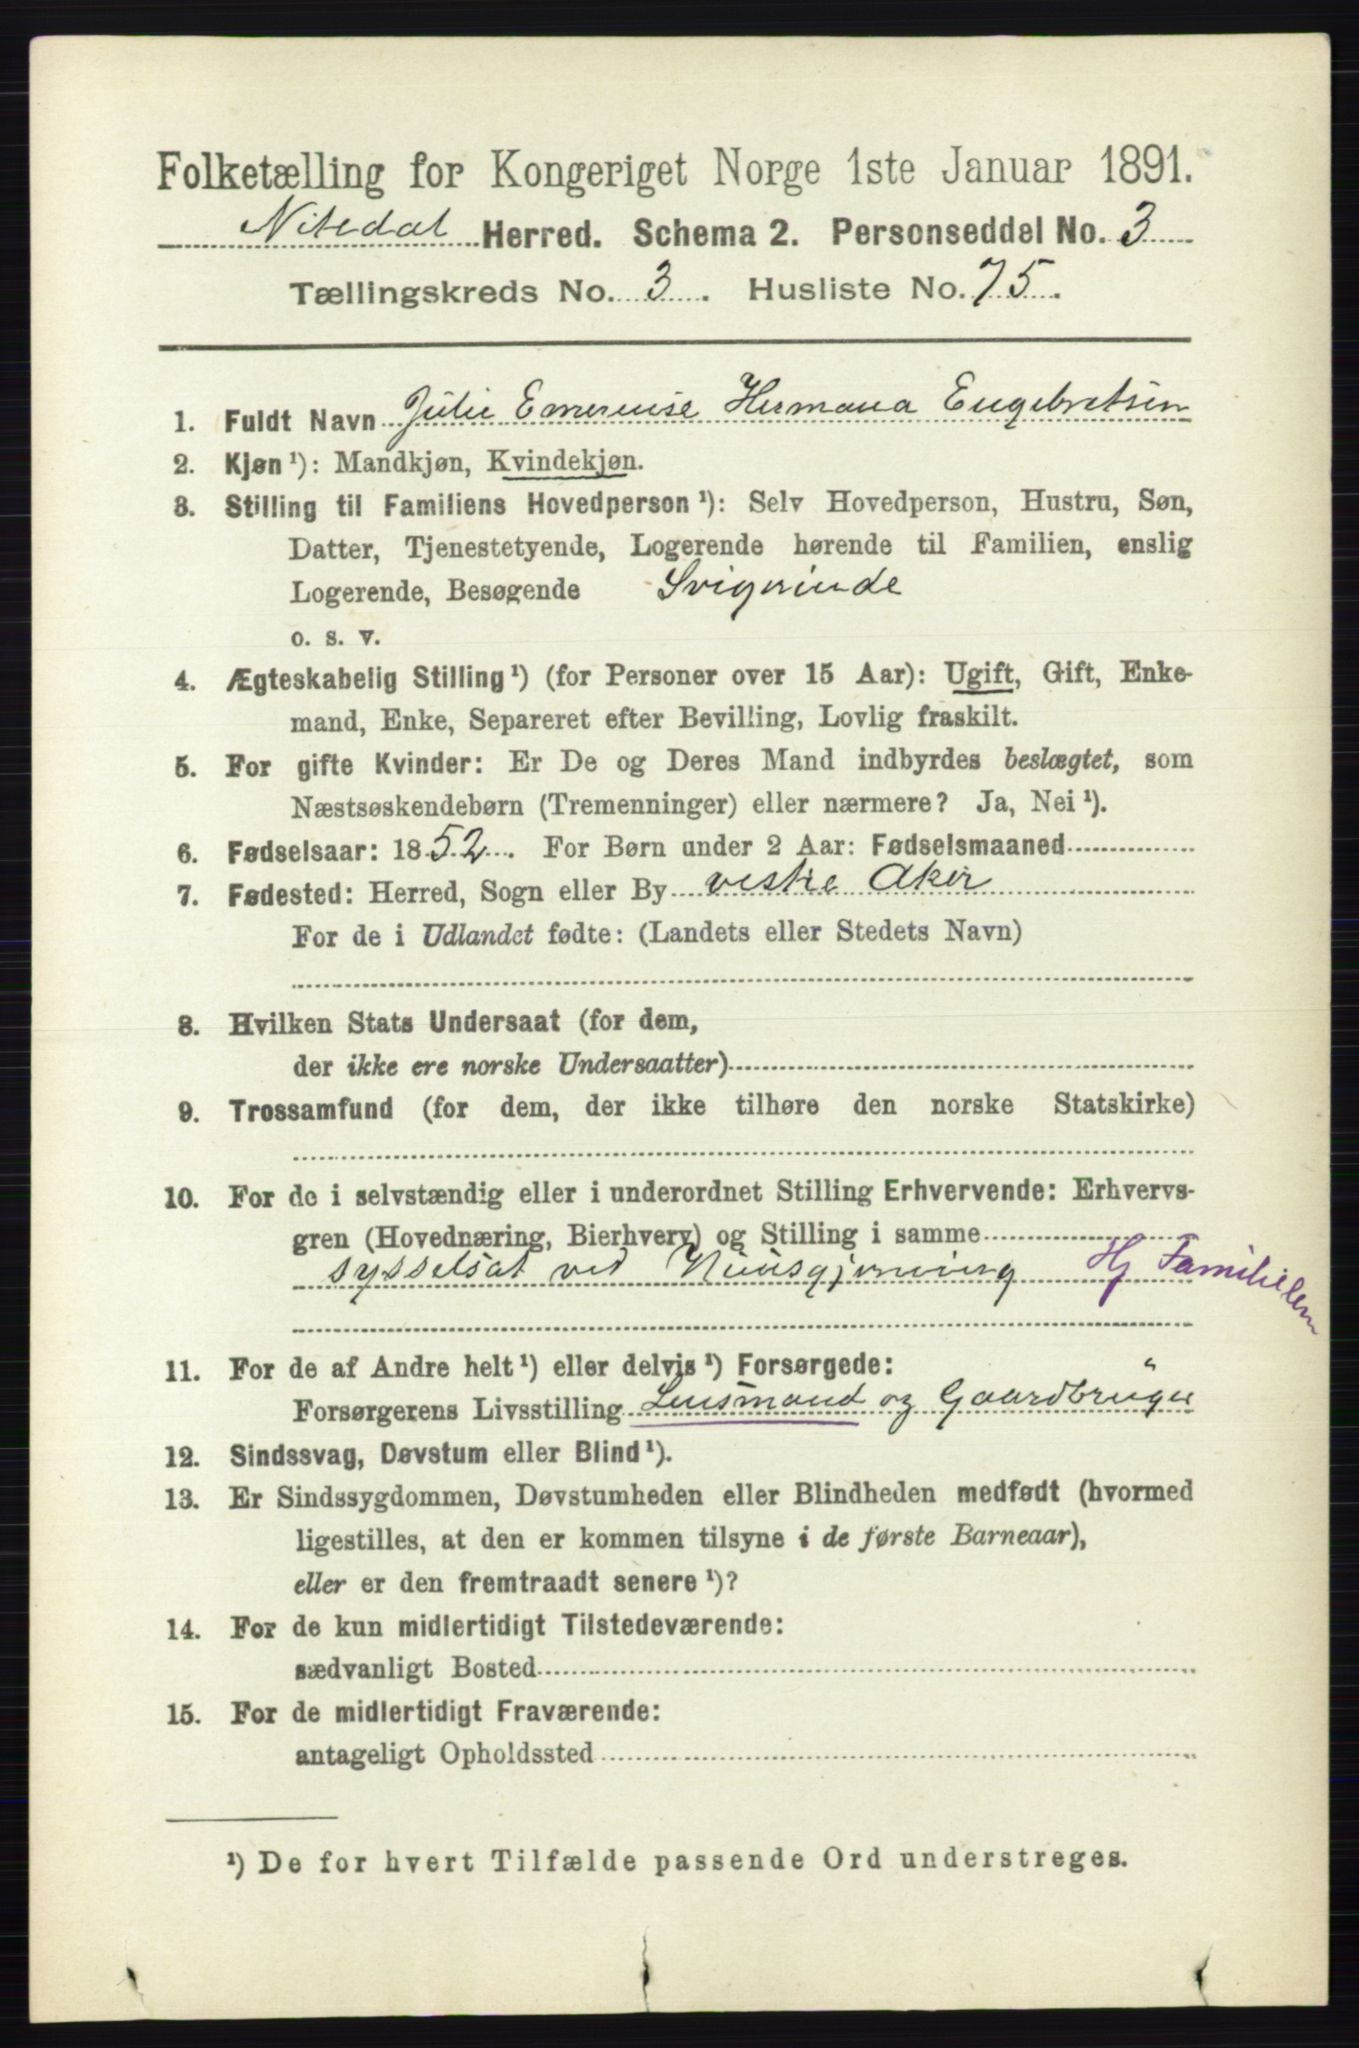 Folketælling for Kongeriget Norge 1ste Januar 1891.
Nitedal Herred. Schema 2. Personseddel No. 3
Tællingskreds No. 3. Husliste No. 75.
1. Fuldt Navn Julie Emerense Hermana Engebretsen
2. Kjøn ¹): Mandkjøn, Kvindekjøn.
3. Stilling til Familiens Hovedperson ¹): Selv Hovedperson, Hustru, Søn,
Datter, Tjenestetyende, Logerende hørende til Familien, enslig
Logerende, Besøgende Svigerinde
o. s. v.
4. Ægteskabelig Stilling ¹) (for Personer over 15 Aar): Ugift, Gift, Enke-
mand, Enke, Separeret efter Bevilling, Lovlig fraskilt.
5. For gifte Kvinder: Er De og Deres Mand indbyrdes beslægtet, som
Næstsøskendebørn (Tremenninger) eller nærmere? Ja, Nei ¹).
6. Fødselsaar: 1852. For Børn under 2 Aar: Fødselsmaaned
7. Fødested: Herred, Sogn eller By vestre Aker
For de i Udlandet fødte: (Landets eller Stedets Navn)
8. Hvilken Stats Undersaat (for dem,
der ikke ere norske Undersaatter)
9. Trossamfund (for dem, der ikke tilhøre den norske Statskirke)
10. For de i selvstændig eller i underordnet Stilling Erhvervende: Erhvervs-
gren (Hovednæring, Bierhverv) og Stilling i samme
sysselsat ved Huusgjerning Hj Familielem
11. For de af Andre helt ¹) eller delvis ¹) Forsørgede: "
Forsørgerens Livsstilling Lensmand og Gaardbruger
12. Sindssvag, Døvstum eller Blind ¹).
13. Er Sindssygdommen, Døvstumheden eller Blindheden medfødt (hvormed
ligestilles, at den er kommen tilsyne i de første Barneaar),
eller er den fremtraadt senere ¹)?
14. For de kun midlertidigt Tilstedeværende:
sædvanligt Bosted
15. For de midlertidigt Fraværende:
antageligt Opholdssted
¹) De for hvert Tilfælde passende Ord understreges.